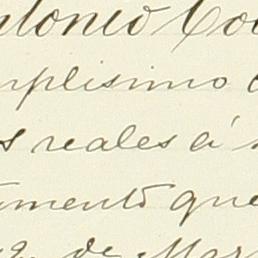 ntonio Co
mplisimo
s reales á
umento que
de Mar